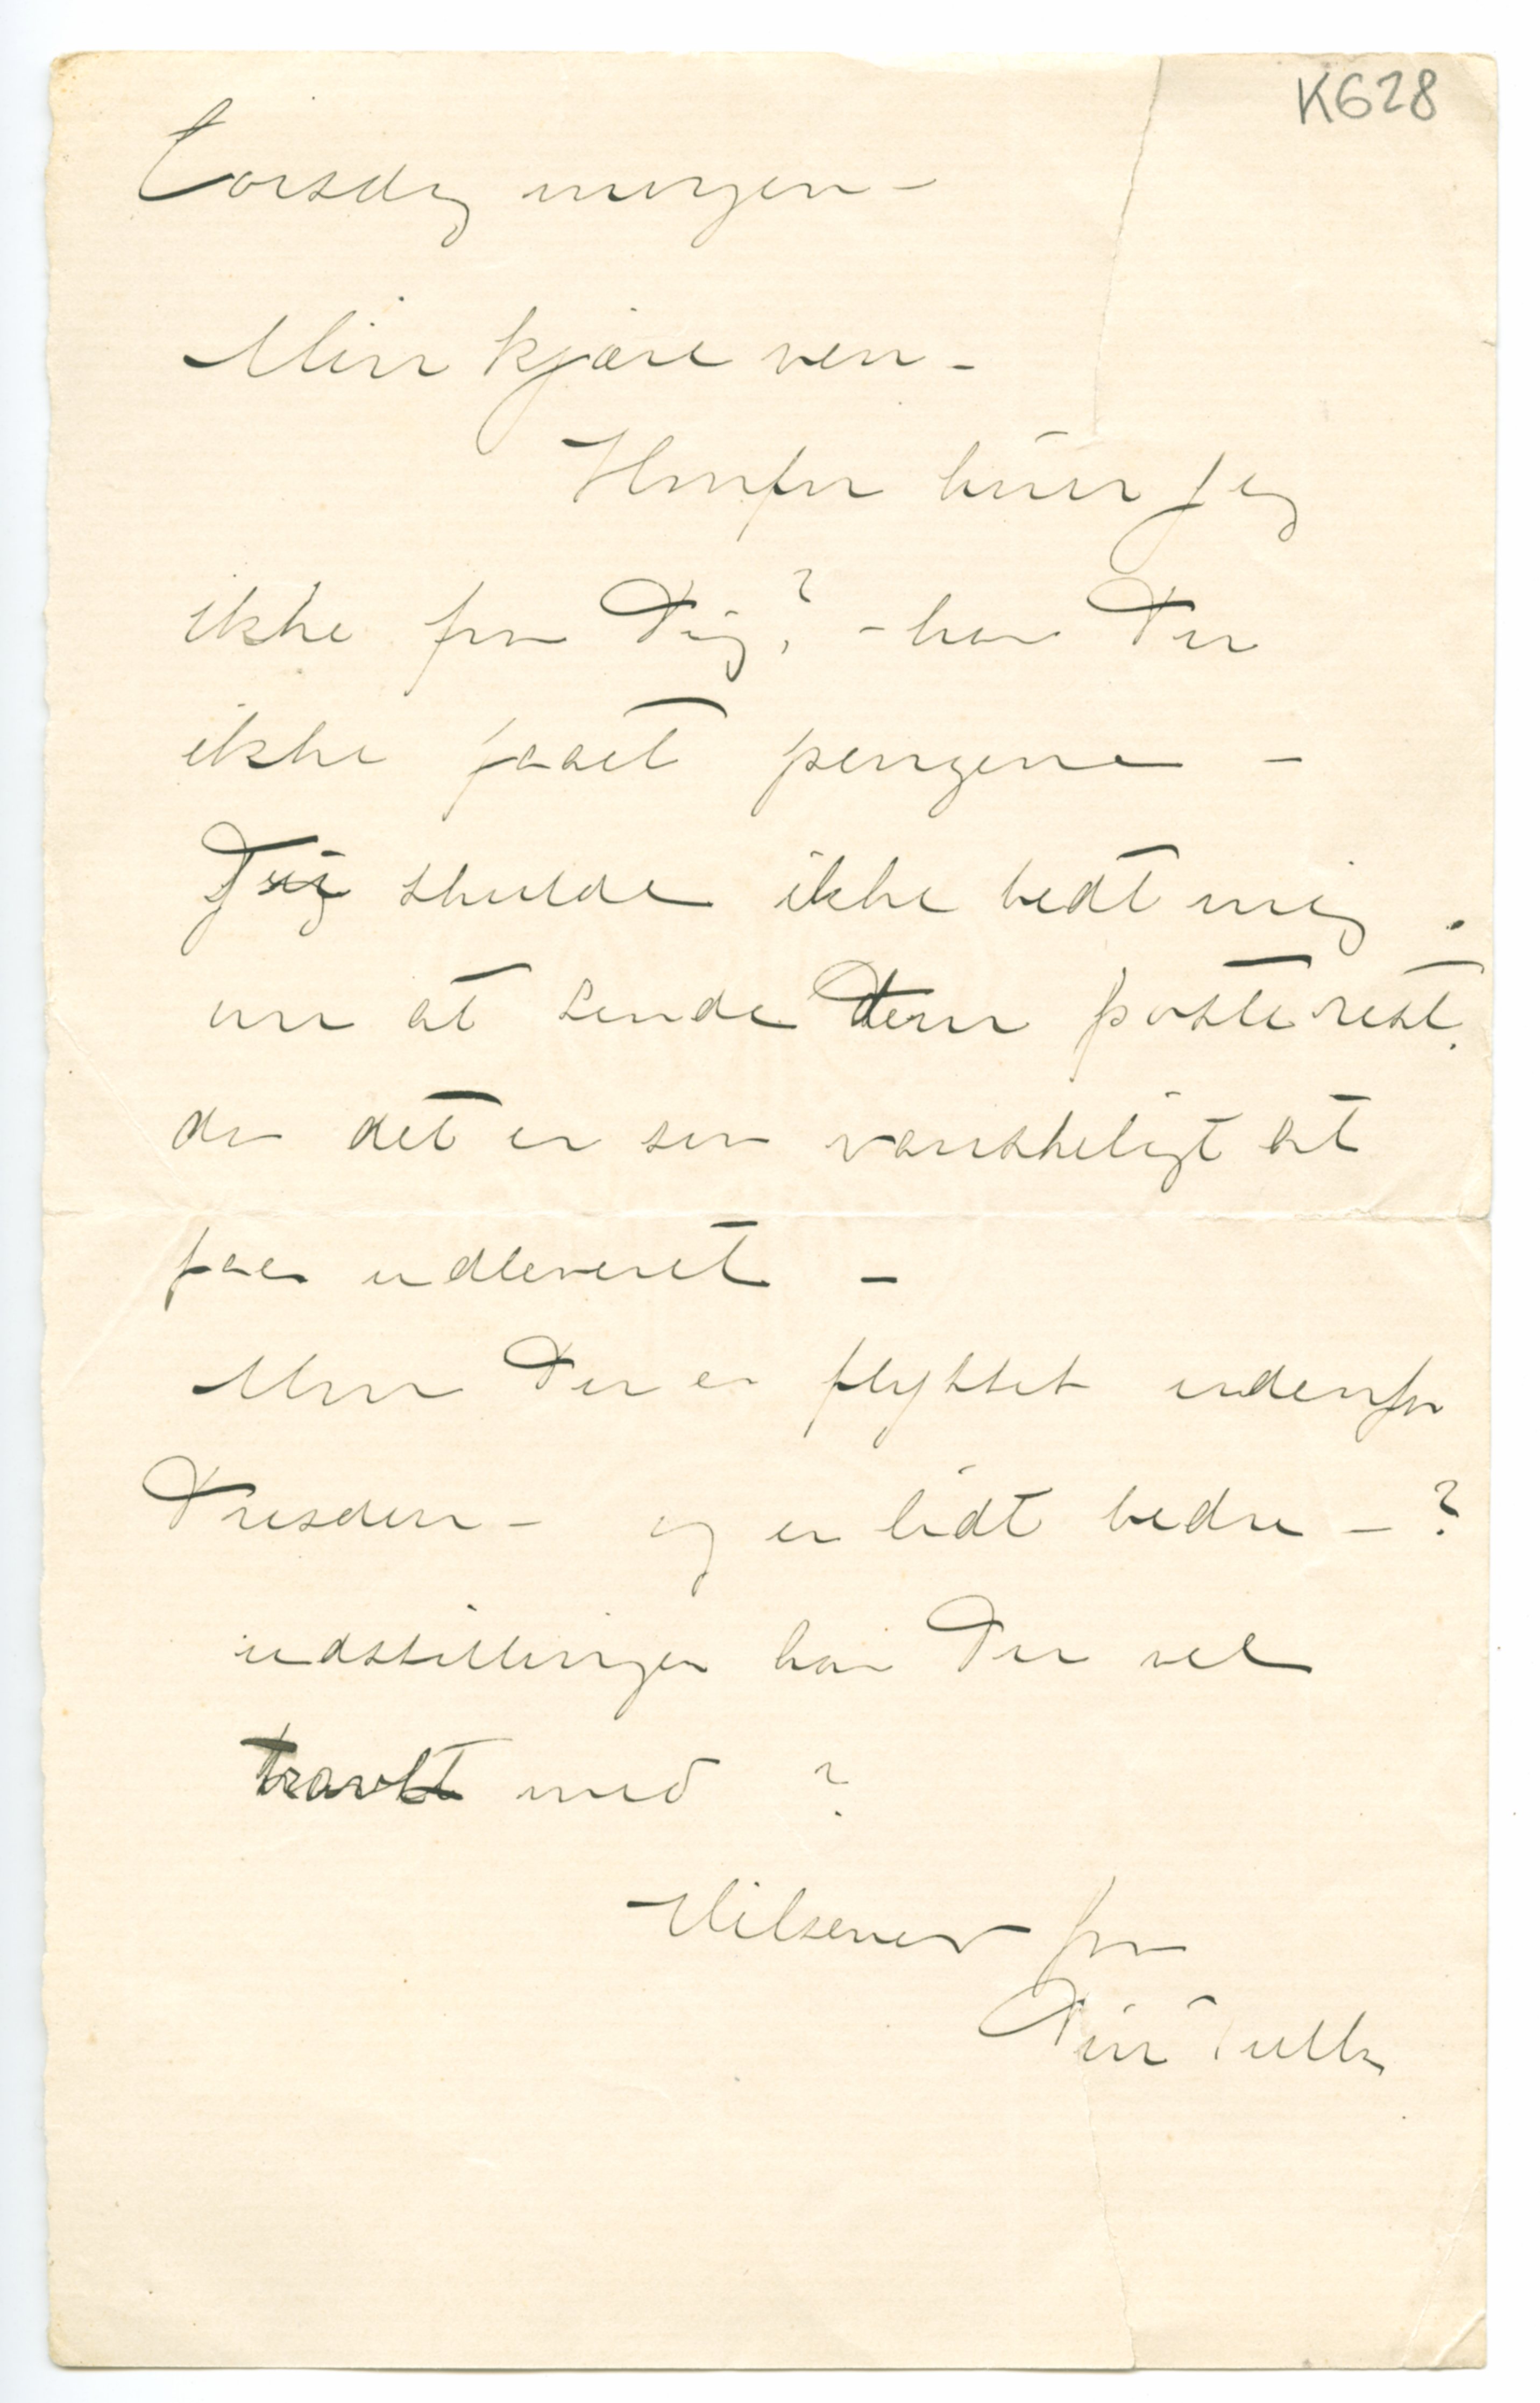 K628
Torsdag morgen –
Min kjære ven –
Hvorfor hører jeg
ikke fra Dig? – har Du
ikke faaet pengene –
skulde ikke bedt mig
om at sende dem poste rest.
da det er saa vanskeligt at
faa udleveret –
Mon Du er flyttet udenfor
Dresden – og er lidt bedre – ?
udstillingen har Du vel
travlt med ?
Hilsener fra
Din Tulla